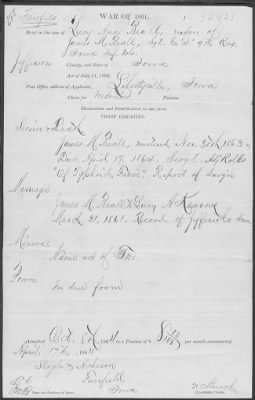 Fairfield
WAR OF 1861.
32421
Brief in the case of Lucy Ann Beall, widow of
James M. Beall, Sgt. Co "G" 7th Reg.
Iowa Inf. Vols.
Jefferson County, and State of Iowa
Act of July 14, 1862.
Post Office address of Applicant, Libertyville, Iowa
Claim for Widow Pension.
Declaration and Identification in due form.
PROOF EXHIBITED.
Service & Death
James M. Beall, enlisted Nov. 30th 1863
Died April 17, 1864. Serg't. Adj Rolls
"Of Typhoid Fever." Report of Surg'n
Marriage
James M. Beall & Lucy A.
March 21, 1861. Record of Jefferson Iowa
Minors
Name of
Power
In due form
Admitted Oct. 1864 to a Pension of $ per month, commencing
April 17th 1864
Acheson
Fairfield
Iowa
Name and Residence of Agent.
Examining Clerk.